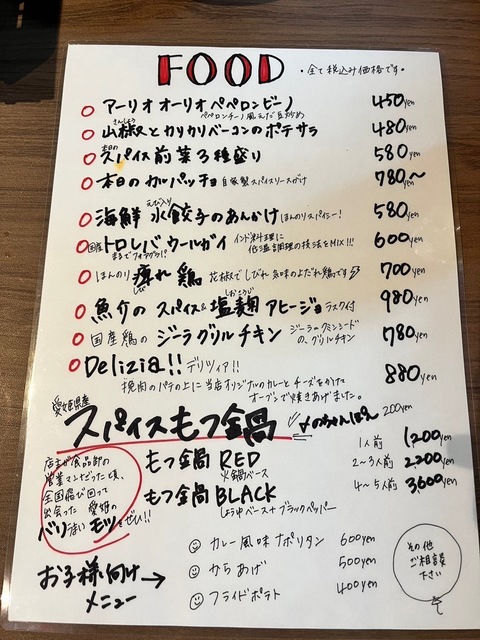 FOOD ・全て税込み価格です・
○ アーリオ オーリオ ペペロンビーノ 450yen
ペペロンチーノ風えだ豆炒め
○ 山椒とカリカリベーコンのポテサラ 480yen
さんしょう
○ 本日のスパイス前菜3種盛り 580yen
○ 本日のカルパッチョ 自家製スパイスソースがけ 780yen〜
○ 海鮮水餃子のあんかけ ほんのりスパイシー! 580yen
えび入り
○ 国産トロレバウールガイ インド料理に 600yen
まるでフォアグラ!? 低温調理の技法をMIX!!!
○ ほんのり痺れ鶏 花椒でしびれ気味のよだれ鶏です 700yen
しび
○ 魚介のスパイス&塩麹アヒージョ ラスク付 980yen
しおこうじ
○ 国産鶏のジーラグリルチキン ジーラ=クミンシード 780yen
の、グリルチキン
○ Delizia!! デリツィア!! 880yen
挽肉のパテの上に当店オリジナルのカレーとチーズをかけて
オーブンで焼きあげました。
愛媛県産
スパイスもつ鍋 〆のちゃんぽん 200yen
1人前 1,200yen
2〜3人前 2,200yen
4〜5人前 3600yen
もつ鍋 RED
火鍋ベース
もつ鍋 BLACK
しょうゆベース+ブラックペッパー
店長が食品卸の
営業マンだった頃、
全国飛び回って
出会った 愛媛の
バリうまいモツをぜひ!!
お子様向け→
メニュー
カレー風味ナポリタン 600yen
からあげ 500yen
フライドポテト 400yen
その他
ご相談
下さい